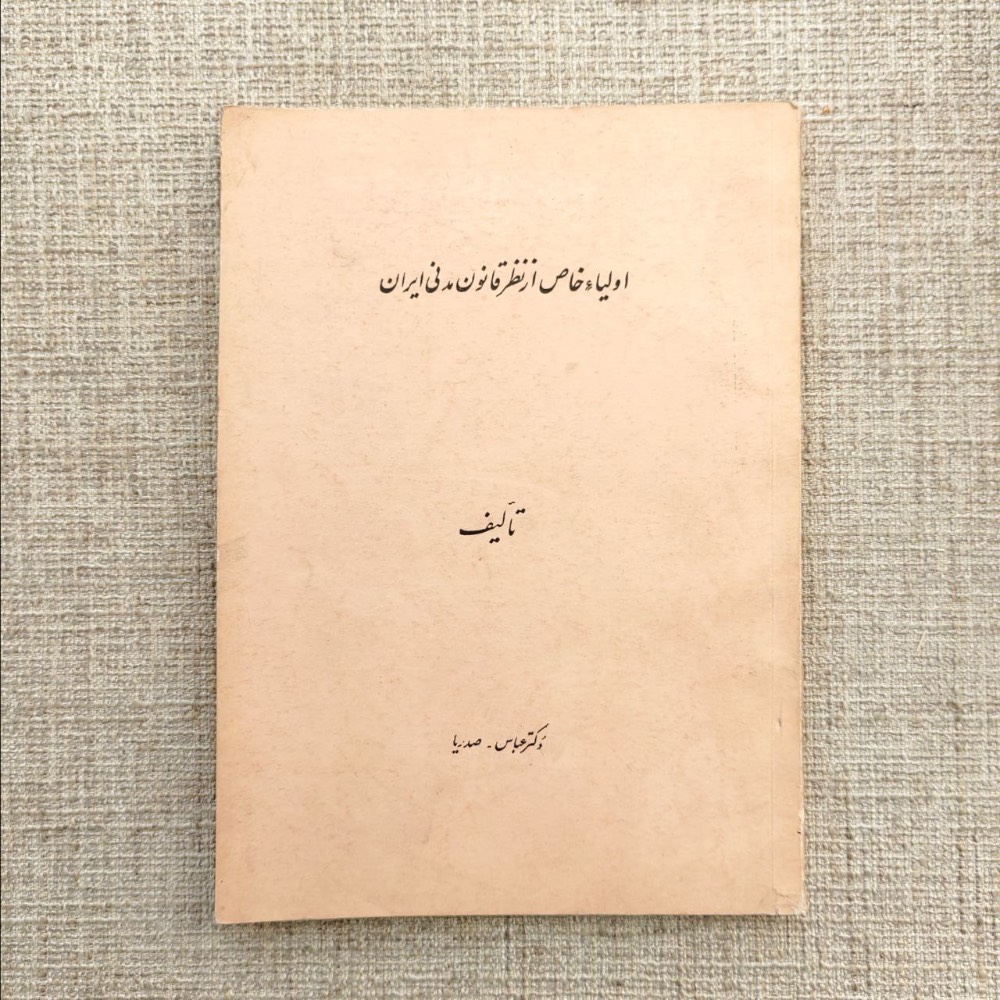 اولیاء خاص از نظر قانون مدنی ایران
تألیف
دکتر عباس - صدریا